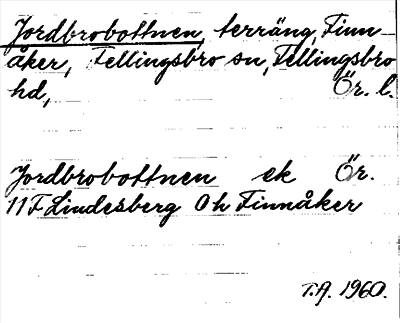 Jordbrobottnen, terräng, Finn-
åker, Fellingsbro sn, Fellingsbro
hd, Ör. l.
Jordbrobottnen ek Ör.
11F Lindesberg 0h Finnåker
T.A. 1960.